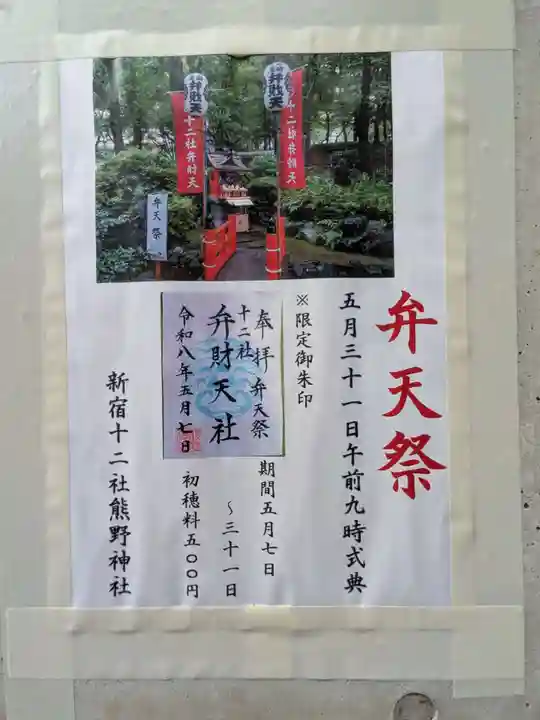 弁財天
弁財天
十二社弁財天
十二社弁財天
弁天祭
弁天祭
五月三十一日午前九時式典
※限定御朱印
奉拝 弁天祭
十二社
弁財天社
令和八年五月七日
期間五月七日
～三十一日
初穂料五〇〇円
新宿十二社熊野神社